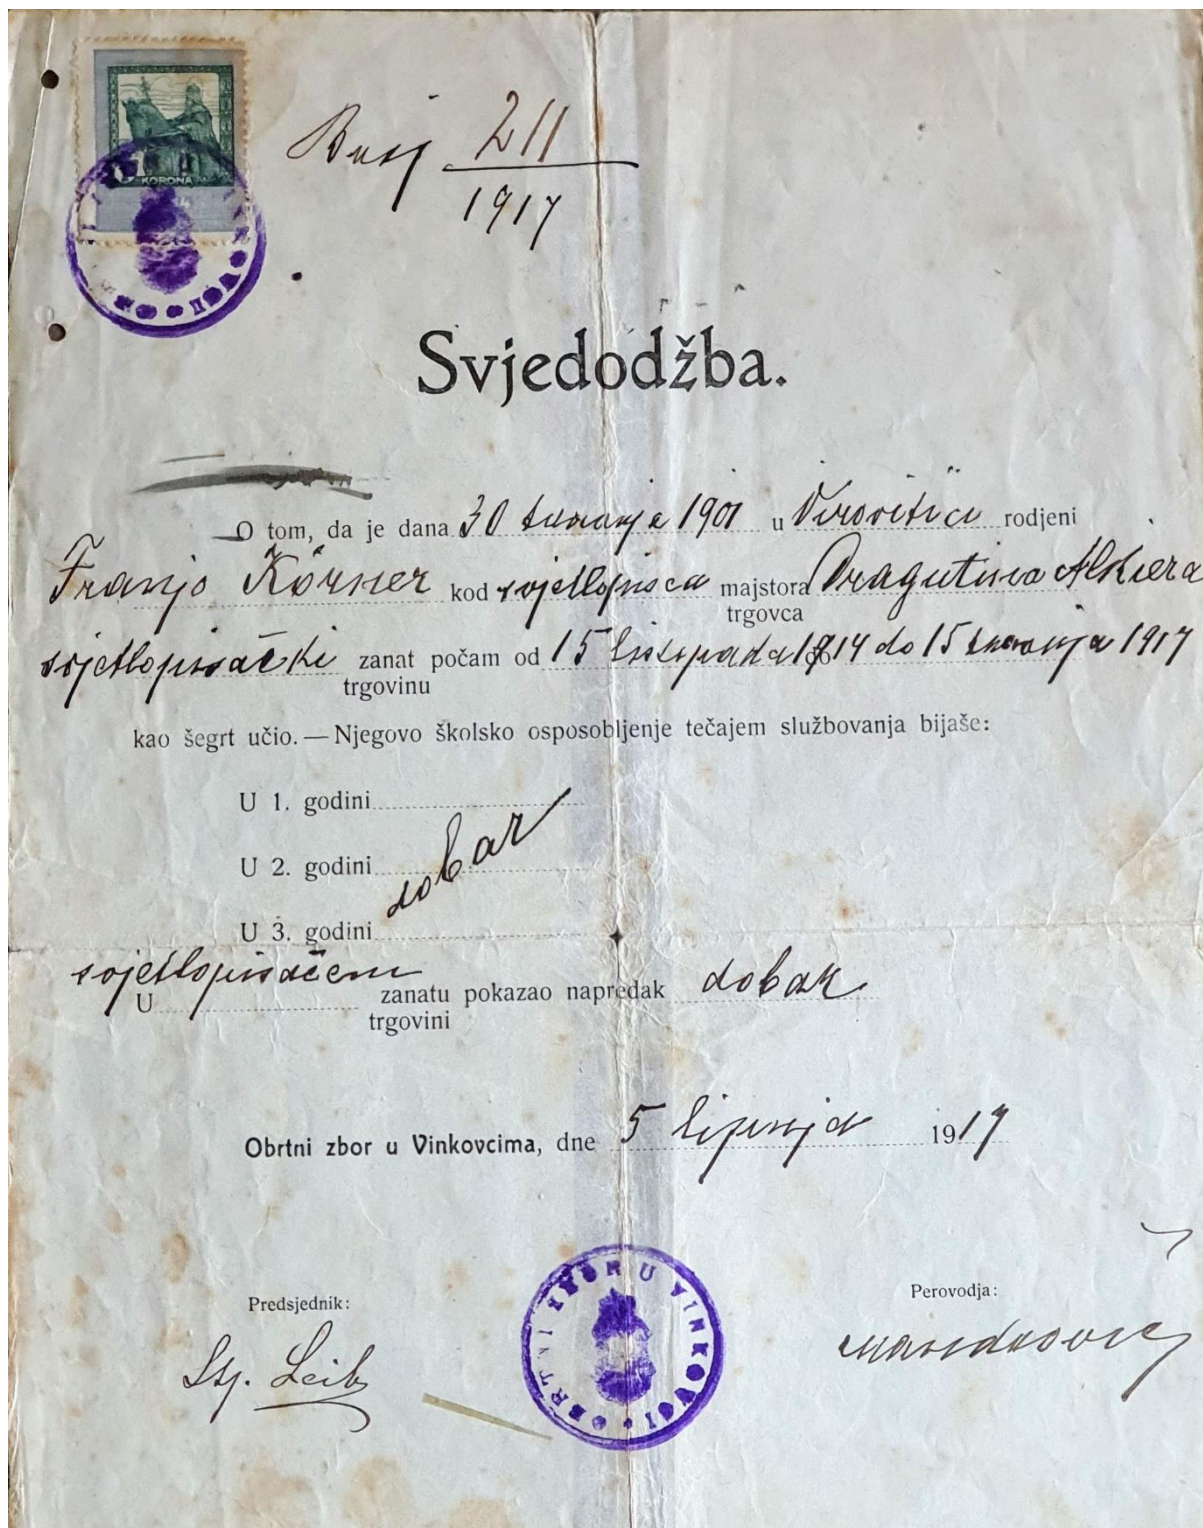 1
KORONA
Broj 211
1917
Svjedodžba.
O tom, da je dana 30 travanja 1901 u Virovitici rodjeni
Franjo Körner kod svjetlopisca majstora Dragutina Alkiera
trgovca
svjetlopisački zanat počam od 15 listopada 1914 do 15 travanja 1917
trgovinu
kao šegrt učio. — Njegovo školsko osposobljenje tečajem službovanja bijaše:
U 1. godini
U 2. godini dobar
U 3. godini
U svjetlopisačem zanatu pokazao napredak dobar
trgovini
Obrtni zbor u Vinkovcima, dne 5 lipnja 1917
Predsjednik:
Perovodja:
Stj. Leib
OBRTNI ZBOR U VINKOVCI